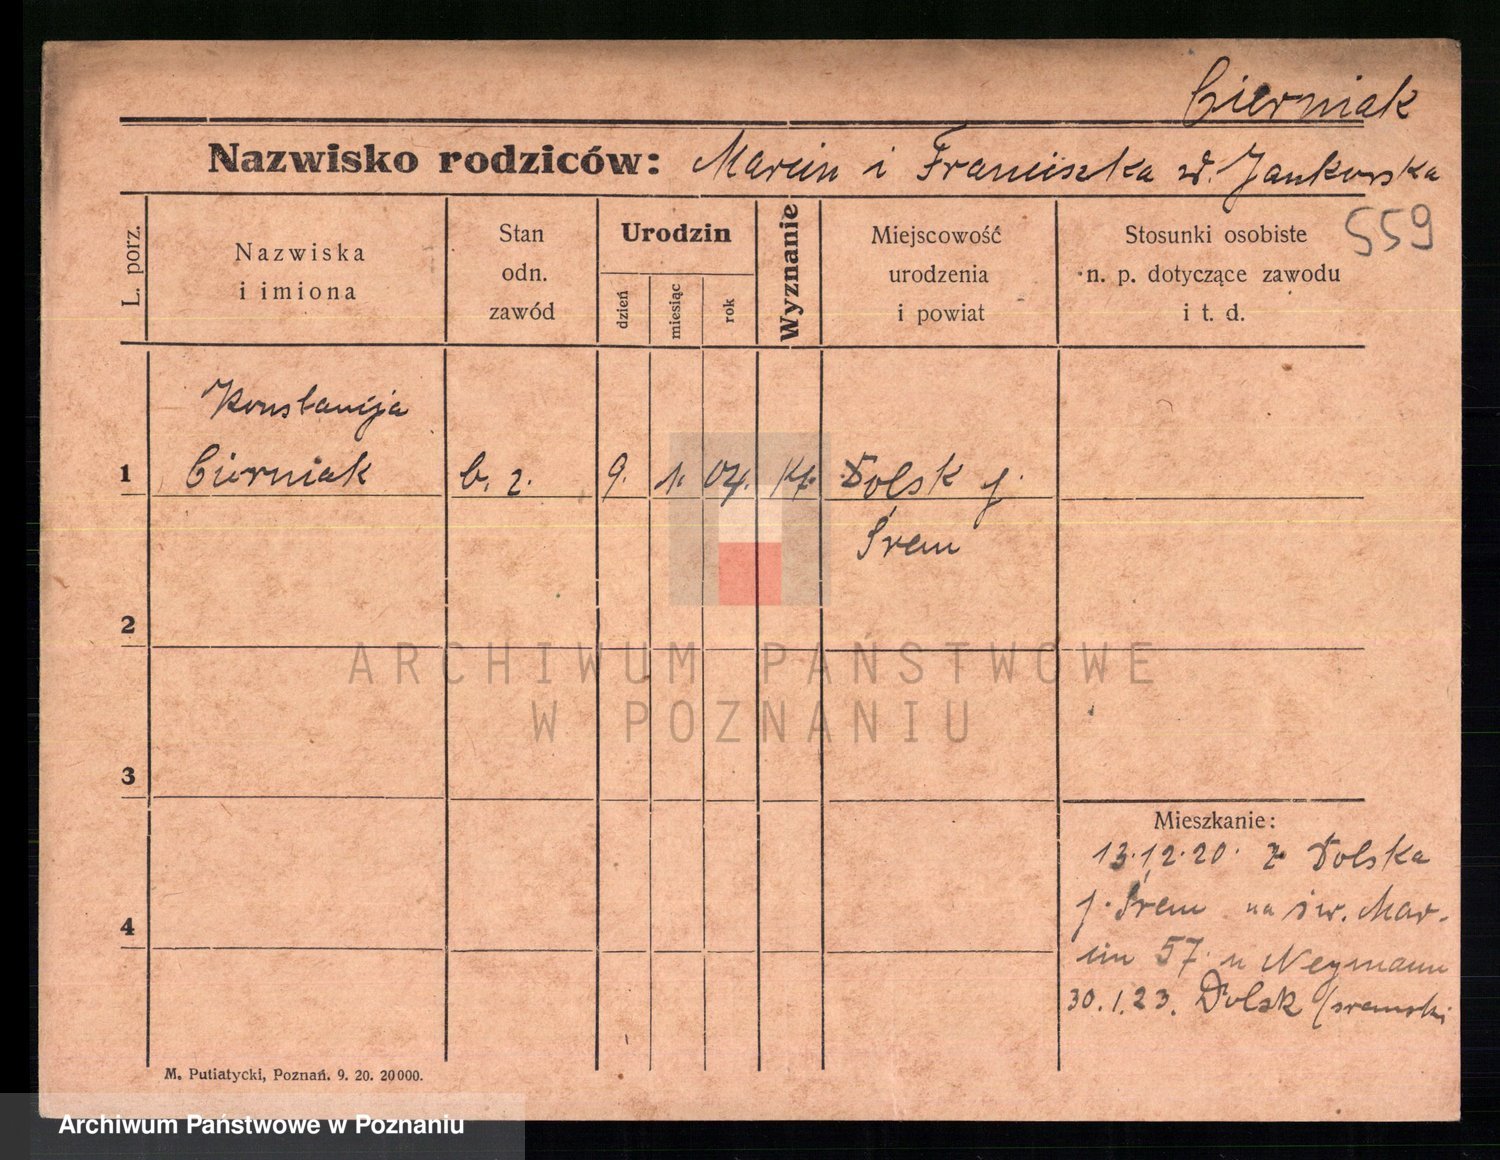 Cierniak
Nazwisko rodziców: Marcin i Franciszka zd. Jankowska
559
L. porz.
Nazwiska
i imiona
Stan
odn.
zawód
Urodzin
dzień
miesiąc
rok
Wyznanie
Miejscowość
urodzenia
i powiat
Stosunki osobiste
n. p. dotyczące zawodu
i t. d.
Konstancja
1 Cierniak b. z. 9. 1. 04. kt. Dolsk p.
Śrem
2
3
4
Mieszkanie:
13.12.20. z Dolska
p. Śrem na św. Mar-
cin 57 u Neymann
30.1.23. Dolsk
M. Putiatycki, Poznań. 9. 20. 20000.
ARCHIWUM PAŃSTWOWE
W POZNANIU
Archiwum Państwowe w Poznaniu